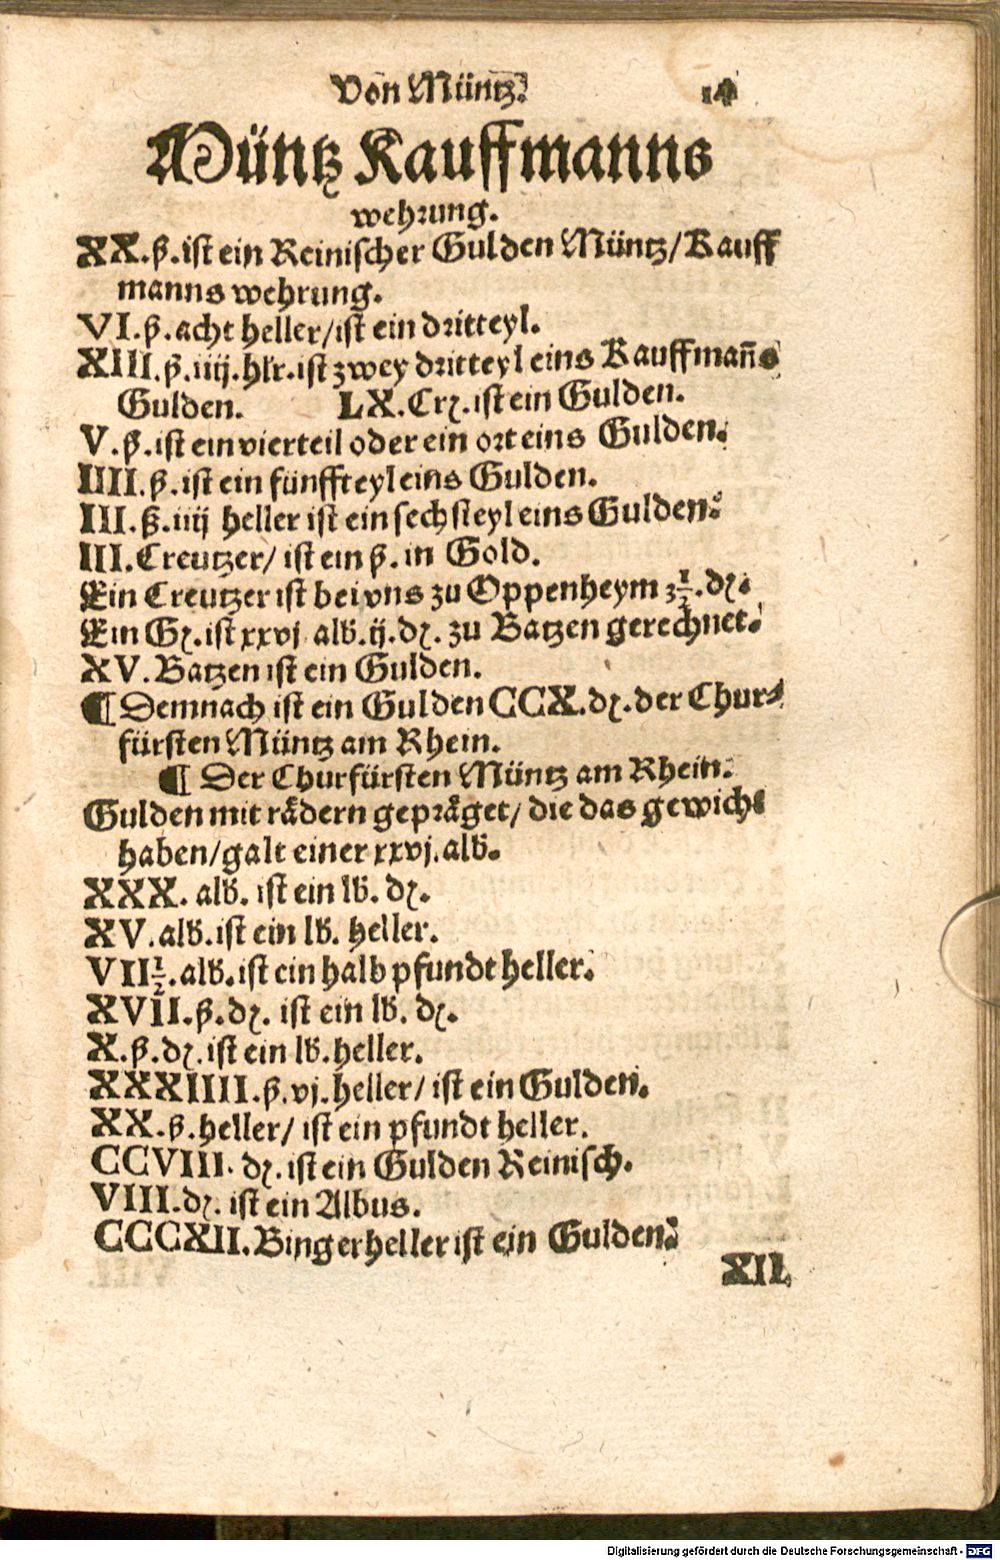 Von Müntz. 14
Müntz Kauffmanns
wehrung.
XX.ß.ist ein Reinischer Gulden Müntz/Kauff
manns wehrung.
VI.ß.acht heller/ist ein dritteyl.
XIII.ß.iiij.hlr.ist zwey dritteyl eins Kauffmañs
Gulden. LX.Crꝛ.ist ein Gulden.
V.ß.ist ein vierteil oder ein ort eins Gulden.
IIII.ß.ist ein fünffteyl eins Gulden.
III.ß.iiij heller ist ein sechsteyl eins Gulden.
III.Creutzer/ ist ein ß. in Gold.
Ein Creutzer ist bei vns zu Oppenheym 3½.dꝛ.
Ein Gꝛ.ist xxvj alb.ij.dꝛ. zu Batzen gerechnet.
XV.Batzen ist ein Gulden.
¶ Demnach ist ein Gulden CCX.dꝛ.der Chur-
fürsten Müntz am Rhein.
¶ Der Churfürsten Müntz am Rhein.
Gulden mit rådern gepråget/ die das gewicht
haben/galt einer xxvj.alb.
XXX. alb. ist ein lb. dꝛ.
XV.alb.ist ein lb. heller.
VII½.alb.ist ein halb pfundt heller.
XVII.ß.dꝛ. ist ein lb. dꝛ.
X.ß.dꝛ.ist ein lb.heller.
XXXIIII.ß.vj.heller/ ist ein Gulden.
XX.ß.heller/ ist ein pfundt heller.
CCVIII. dꝛ.ist ein Gulden Reinisch.
VIII.dꝛ. ist ein Albus.
CCCXII.Binger heller ist ein Gulden.
XII.
Digitalisierung gefördert durch die Deutsche Forschungsgemeinschaft - DFG